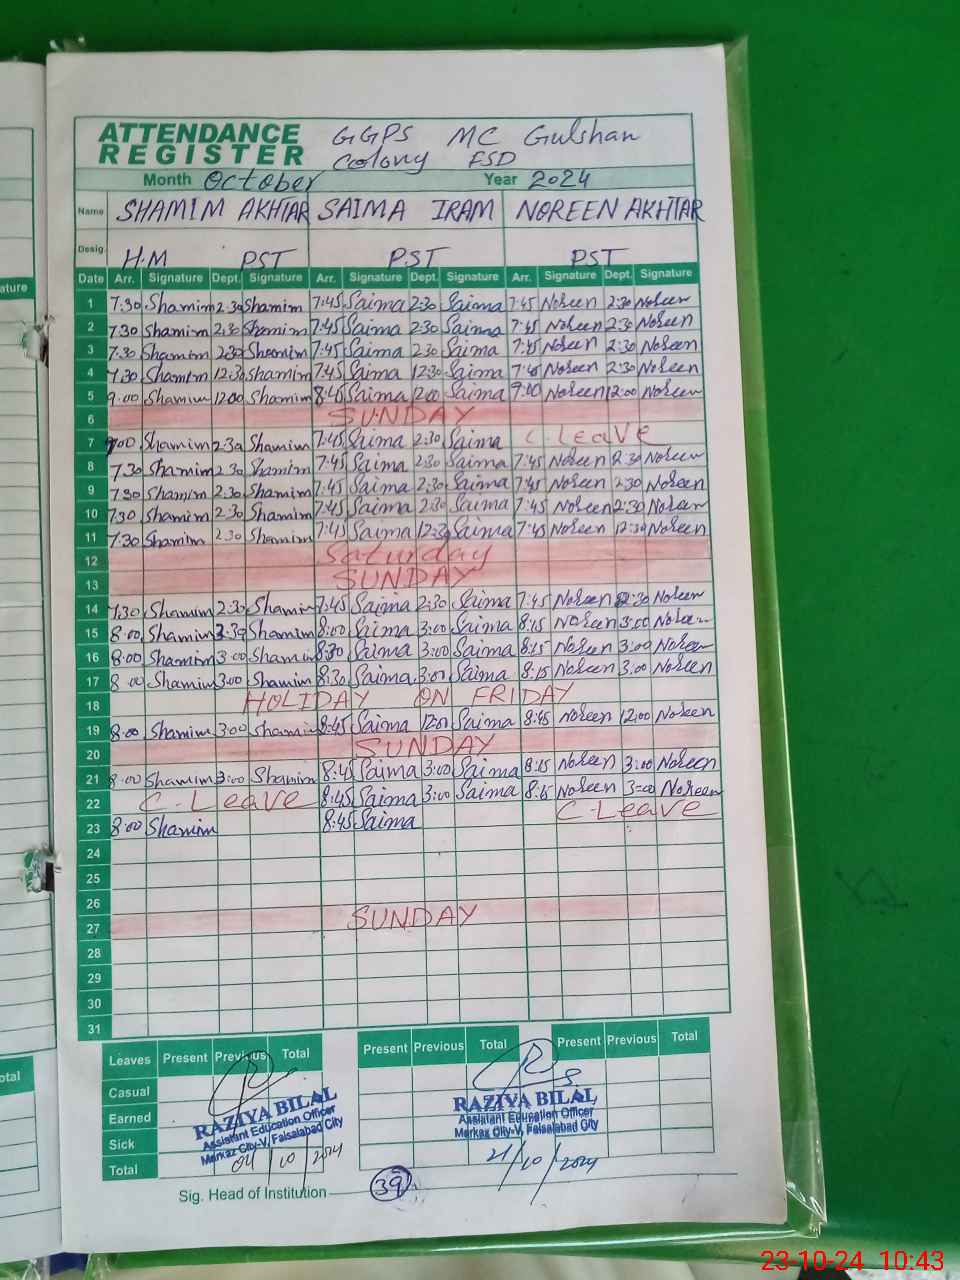 ature
otal
ATTENDANCE REGISTER GGPS MC Gulshan
Colony FSD
Month October Year 2024
Name SHAMIM AKHTAR SAIMA IRAM NOREEN AKHTAR
Desig. H.M PST PST PST
Date Arr. Signature Dept. Signature Arr. Signature Dept. Signature Arr. Signature Dept. Signature
1 7:30 Shamim 2:30 Shamim 7:45 Saima 2:30 Saima 7:45 Noreen 2:30 Noreen
2 7:30 Shamim 2:30 Shamim 7:45 Saima 2:30 Saima 7:45 Noreen 2:30 Noreen
3 7:30 Shamim 2:30 Shamim 7:45 Saima 2:30 Saima 7:45 Noreen 2:30 Noreen
4 7:30 Shamim 12:30 Shamim 7:45 Saima 12:30 Saima 7:45 Noreen 2:30 Noreen
5 9:00 Shamim 12:00 Shamim 8:45 Saima Saima 9:00 Noreen 12:00 Noreen
6 SUNDAY
7 Shamim 2:30 Shamim 7:45 Saima 2:30 Saima C. Leave
8 7:30 Shamim 2:30 Shamim 7:45 Saima 2:30 Saima 7:45 Noreen 2:30 Noreen
9 7:30 Shamim 2:30 Shamim 7:45 Saima 2:30 Saima 7:45 Noreen 2:30 Noreen
10 7:30 Shamim 2:30 Shamim 7:45 Saima 2:30 Saima 7:45 Noreen 2:30 Noreen
11 7:30 Shamim 2:30 Shamim 7:45 Saima 12:30 Saima 7:45 Noreen 12:30 Noreen
12 Saturday
13 SUNDAY
14 7:30 Shamim 2:30 Shamim 7:45 Saima 2:30 Saima 7:45 Noreen 2:30 Noreen
15 8:00 Shamim Shamim 8:00 Saima 3:00 Saima 8:15 Noreen 3:00 Noreen
16 8:00 Shamim 3:00 Shamim 8:30 Saima 3:00 Saima 8:15 Noreen 3:00 Noreen
17 8:00 Shamim 3:00 Shamim 8:30 Saima 3:00 Saima 8:15 Noreen 3:00 Noreen
18 HOLIDAY ON FRIDAY
19 8:00 Shamim 3:00 Shamim 8:45 Saima 12:00 Saima 8:45 Noreen 12:00 Noreen
20 SUNDAY
21 8:00 Shamim 3:00 Shamim 8:45 Saima 3:00 Saima 8:15 Noreen 3:00 Noreen
22 C. Leave 8:45 Saima 3:00 Saima 8:15 Noreen 3:00 Noreen
23 8:00 Shamim 8:45 Saima C. Leave
24
25
26
27 SUNDAY
28
29
30
31
Leaves Present Previous Total Present Previous Total Present Previous Total
Casual
Earned
Sick
Total
RAZIYA BILAL
Assistant Education Officer
Markaz City-V, Faisalabad City
04/10/2024
RAZIYA BILAL
Assistant Education Officer
Markaz City-V, Faisalabad City
21/10/2024
Sig. Head of Institution
39
23-10-24 10:43